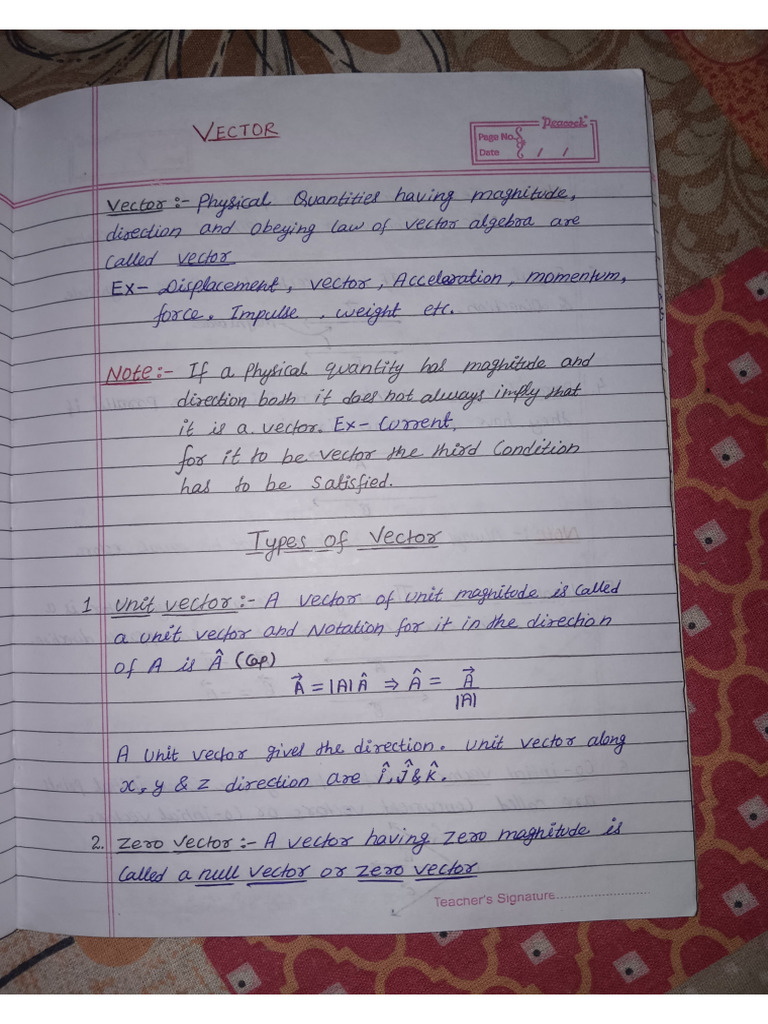 VECTOR
Peacock
Page No.
Date / /
Vector :- Physical Quantities having magnitude,
direction and obeying law of vector algebra are
called vector
Ex- Displacement, vector, Acceleration, momentum,
force, Impulse, weight etc.
Note :- If a physical quantity has magnitude and
direction both it does not always imply that
it is a vector. Ex- Current,
for it to be vector the third condition
has to be satisfied.
Types of Vector
1 Unit vector :- A vector of unit magnitude is called
a unit vector and Notation for it in the direction
of A is Â (Cap)
A⃗ = |A| Â ⇒ Â = A⃗
|A|
A unit vector gives the direction. unit vector along
x, y & z direction are î, Ĵ & k̂.
2. Zero Vector :- A vector having zero magnitude is
called a null vector or zero vector
Teacher's Signature....................